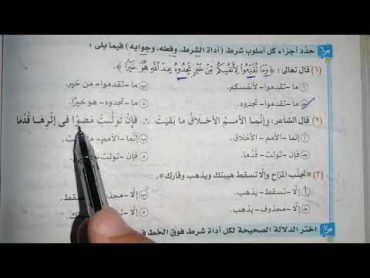 حدّد أجزاء كل أسلوب شرط (أداة الشرط، وفعله، وجوابه) فيما يلى :
(١) قال تعالى : ﴿ وَمَا تُقَدِّمُوا لِأَنفُسِكُم مِّنْ خَيْرٍ تَجِدُوهُ عِندَ اللَّهِ هُوَ خَيْرًا ﴾.
ما - تقدموا - لأنفسكم. ما - تقدموا - من خير.
ما - تقدموا - تجدوه. ما - تجدوه - هو خيرًا.
(٢) قال الشاعر: وإنّما الأممُ الأخلاقُ ما بقيتْ فإن تولّتْ مضَوْا فى إثْرِها قُدُمًا
إنّما - الأمم - الأخلاق. إنّما - الأمم -
فإن - تولت - قدمًا. فإن - تولت -
(٣) «تجنب المزاح وإلّا تسقط هيبتك ويذهب وقارك».
وإلّا - تسقط - ويذهب. وإلّا - تسقط -
وإلّا - محذوف - يذهب. وإلّا - محذوف - تسقط.
اختر الدلالة الصحيحة لكل أداة شرط فوق الخط